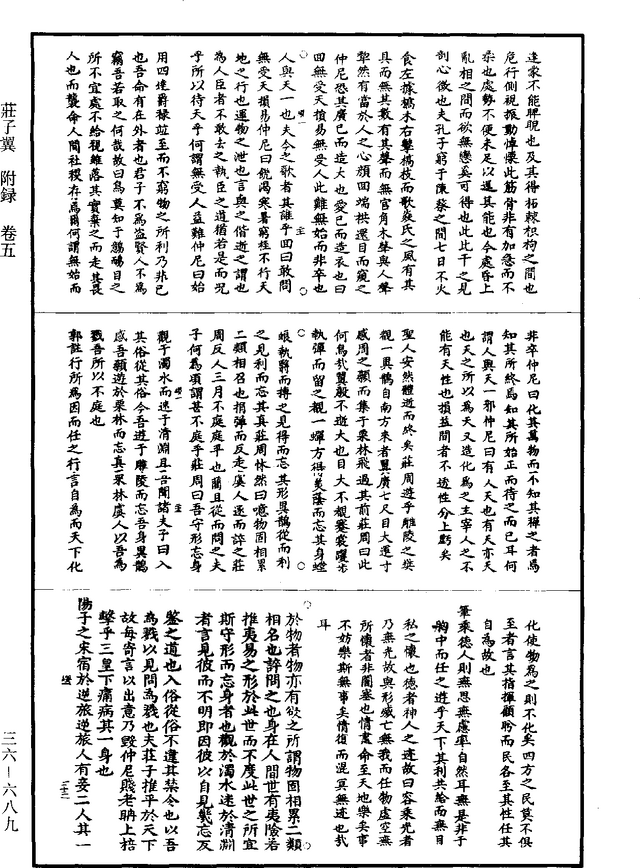 逢蒙不能眄睨也及其得柘棘枳枸之間也
危行側視振動悼慄此筋骨非有加急而不
柔也處勢不便未足以逞其能也今處昏上
亂相之間而欲無憊奚可得也此比干之見
剖心徵也夫孔子窮于陳蔡之間七日不火
食左據槁木右擊槁枝而歌焱氏之風有其
具而無其數有其聲而無宮角木聲與人聲
犂然有當於人之心顏回端拱還目而窺之
仲尼恐其廣已而造大也愛已而造哀也曰
回無受天損易無受人益難無始而非卒也
人與天一也夫今之歌者其誰乎回曰敢問
無受天損易仲尼曰飢渴寒暑窮桎不行天
地之行也運物之泄也言與之偕逝之謂也
為人臣者不敢去之執臣之道猶若是而況
乎所以待天乎何謂無受人益難仲尼曰始
用四達爵祿竝至而不窮物之所利乃非已
也吾命有在外者也君子不為盜賢人不為
竊吾若取之何哉故曰鳥莫知于鷾鴯目之
所不宜處不給視雖落其實棄之而走其畏
人也而襲命人間社稷存焉爾何謂無始而
非卒仲尼曰化其萬物而不知其禪之者焉
知其所終焉知其所始正而待之而已耳何
謂人與天一邪仲尼曰有人天也有天亦天
也天之所以為天又造化為之主宰人之不
能有天性也損益間者不透性分上虧矣
聖人安然體逝而終矣莊周遊乎雕陵之樊
覩一異鵲自南方來者翼廣七尺目大運寸
感周之顙而集于栗林飛過其前莊周曰此
何鳥哉翼殷不逝大也目大不覩褰裳躩步
執彈而留之覩一蟬方得美蔭而忘其身螳
蜋執翳而搏之見得而忘其形異鵲從而利
之見利而忘其真莊周怵然曰噫物固相累
二類相召也捐彈而反走虞人逐而誶之莊
周反入三月不庭庭乎也藺且從而問之夫
子何為頃謂甚不庭乎莊周曰吾守形忘身
觀于濁水而迷于清淵且吾聞諸夫子曰入
其俗從其俗今吾遊于雕陵而忘吾身異鵲
感吾顙遊於栗林而忘真栗林虞人以吾為
戮吾所以不庭也
郭註行所為因而任之行言自為而天下化
化使物為之則不化矣四方之民莫不俱
至者言其指揮顧盻而民各至其性任其
自為故也
筆乘德人則無思無慮率自然耳無是非于
胸中而任之遊乎天下其利共給而無自
私之懷也德者神人之迹故曰容乘光者
乃無光故與形滅亡無我而任物虛空無
所懷者非闇塞也情盡命至天地樂矣事
不妨樂斯無事矣情復而混冥無迹也哉
耳
於物者物亦有欲之所謂物固相累二類
相召也誶問之也身在人間世有夷險若
推夷易之形於此世而不度此世之所宜
斯守形而忘身者也觀於濁水迷於清淵
者言見彼而不明即因彼以自見幾忘反
鑒之道也入俗從俗不違其禁令也以吾
為戮以見問為戮也夫莊子推平於天下
故每寄言以出意乃毀仲尼賤老聃上掊
擊乎三皇下痛病其一身也
陽子之宋宿於逆旅逆旅人有妾二人其一
莊子翼 附録 卷五
三六—六八九